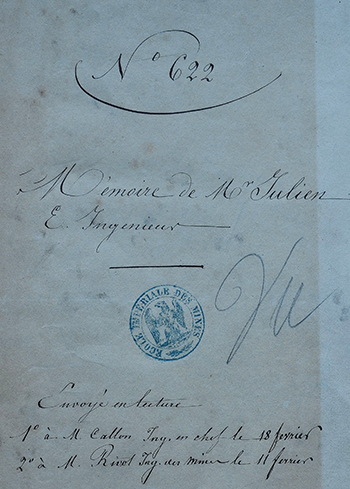 N° 622
Mémoire de Mr Julien
E. Ingenieur
ECOLE IMPERIALE DES MINES
Vu
Envoyé en lecture
1° à M. Callon Ing. en chef le 18 fevrier
2° à M. Rivot Ing. des mines le 11 fevrier